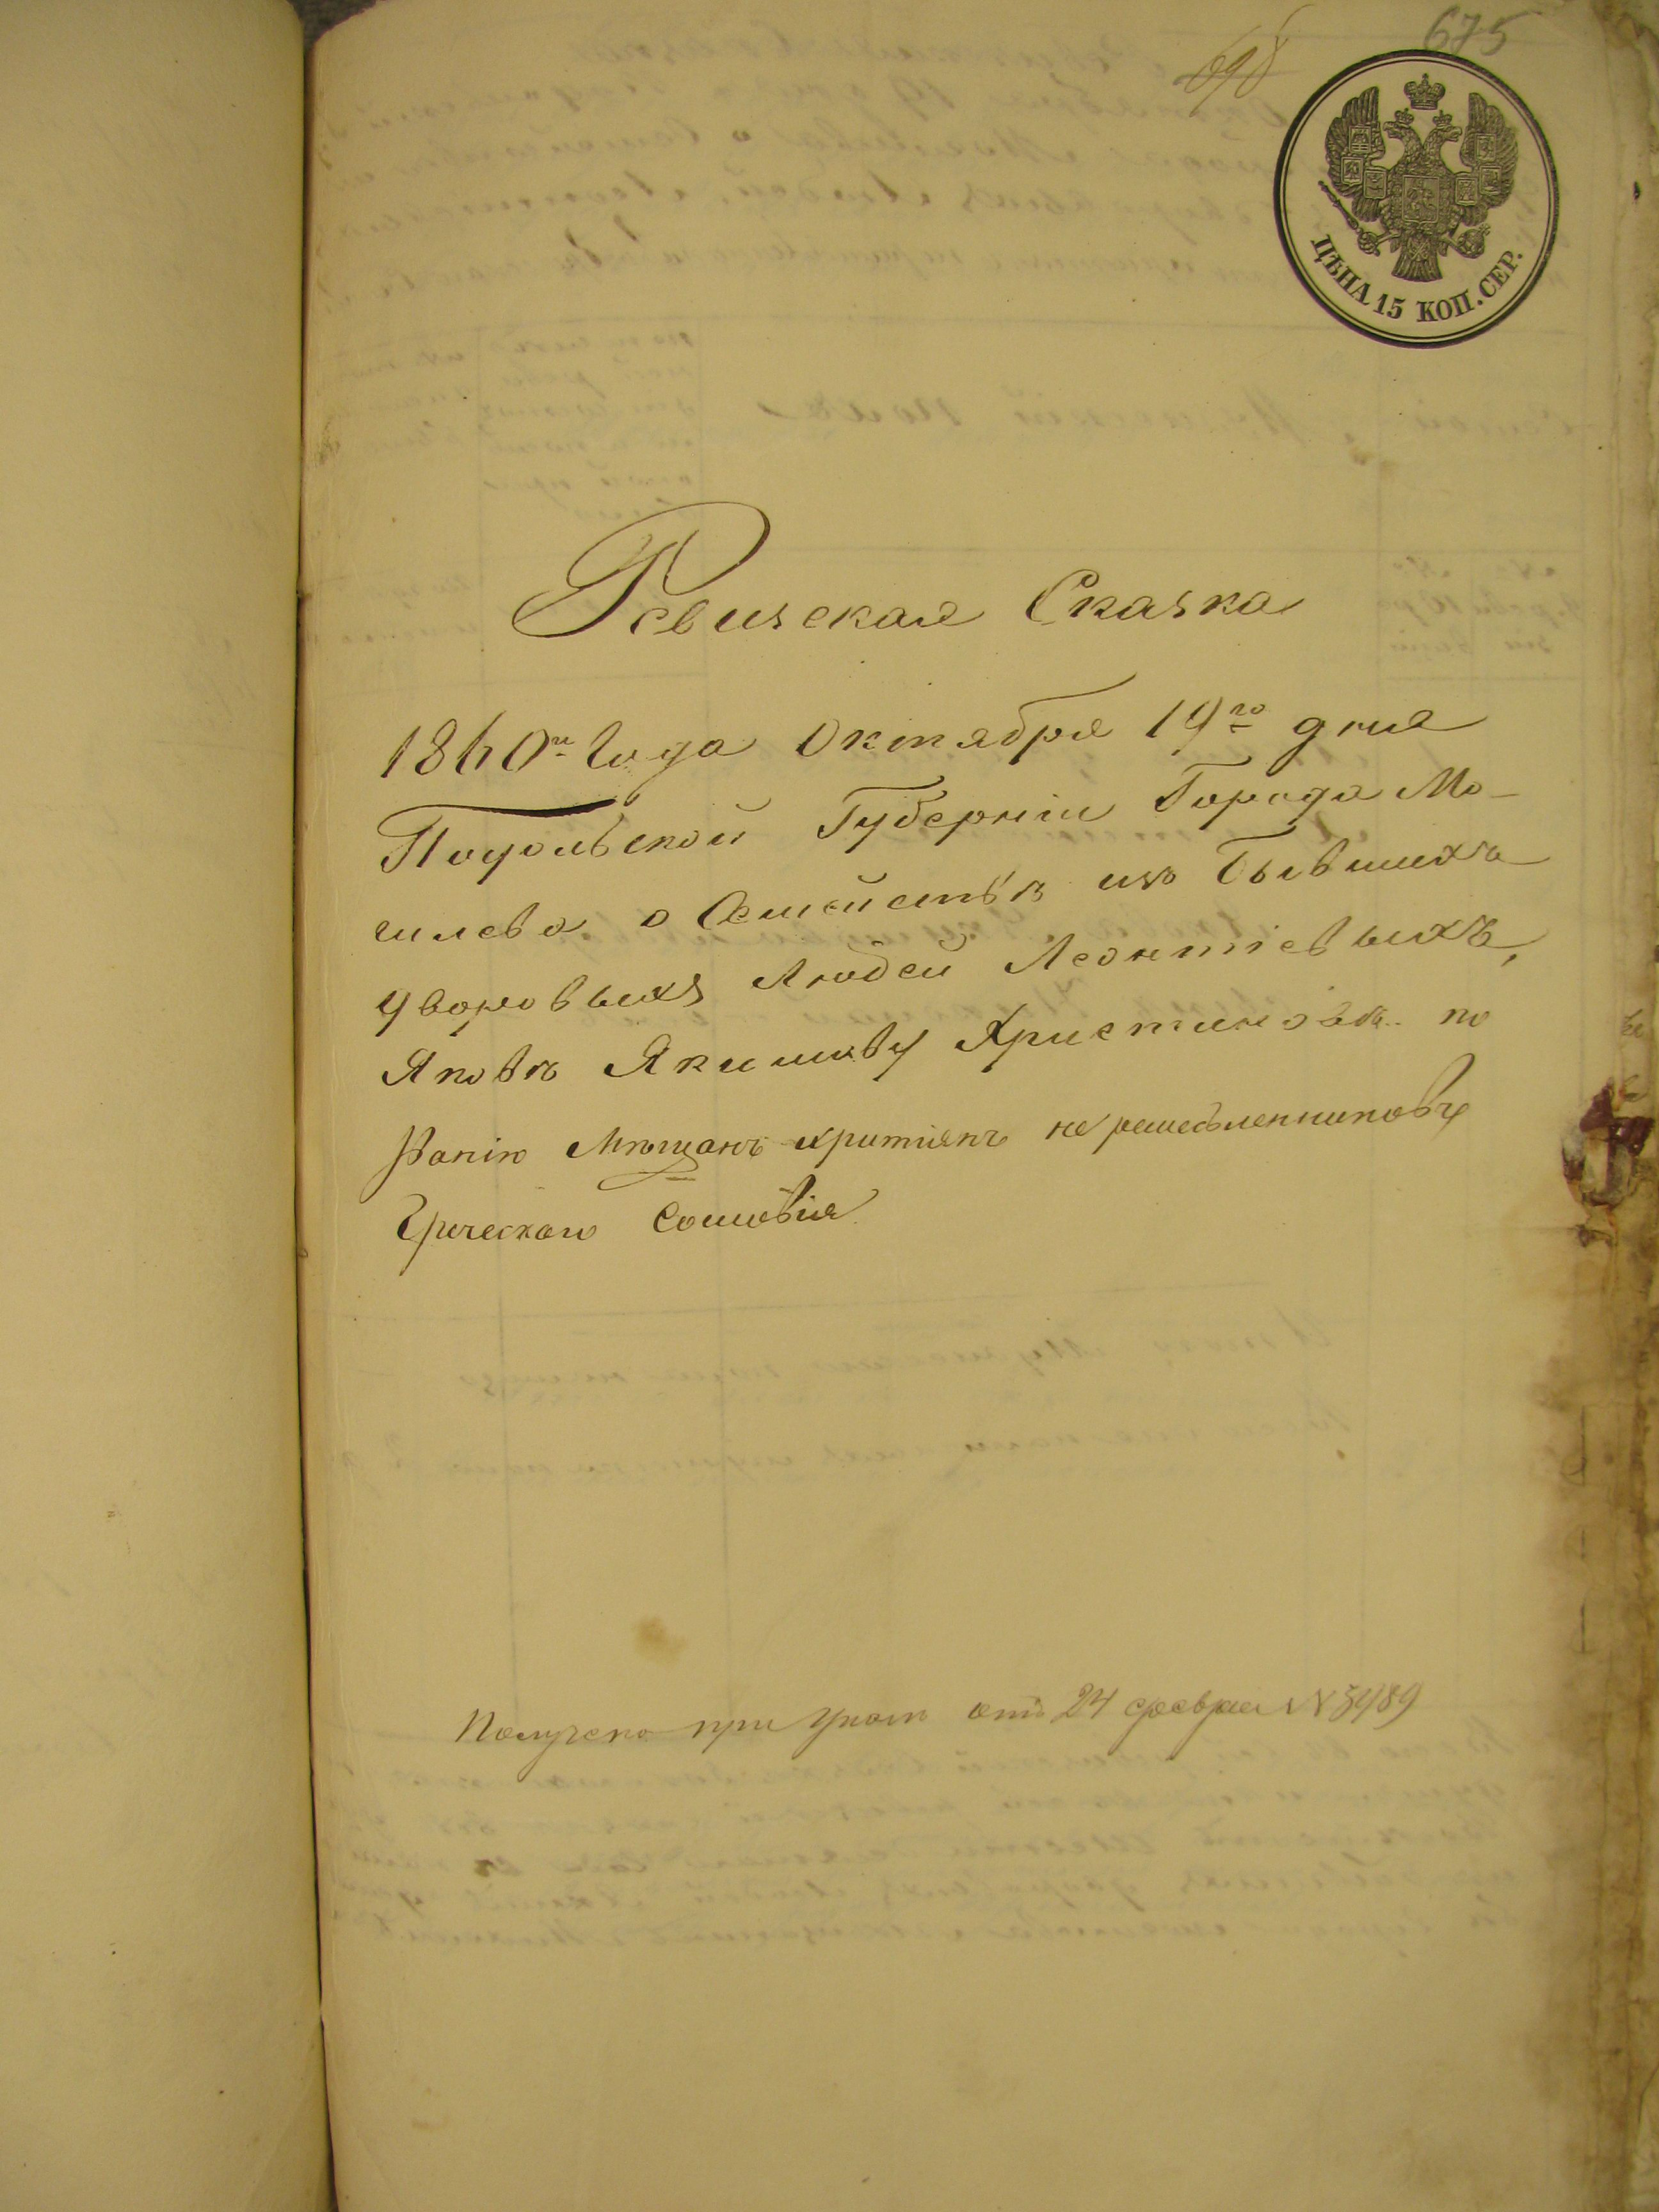 675
698
ЦѢНА 15 КОП. СЕР.
Ревизская Сказка
1860го Года Октября 19го дня
Подольской Губерніи Города Мо-
гилева о Семействѣ изъ Бывшихъ
дворовыхъ Людей Леонтіевыхъ,
Яковѣ Якимову Христиновѣ по
Званію Мѣщанъ христіянъ не ремесленниковъ
Греческаго Сословія
Получено при Указѣ отъ 24 февраля N 3489